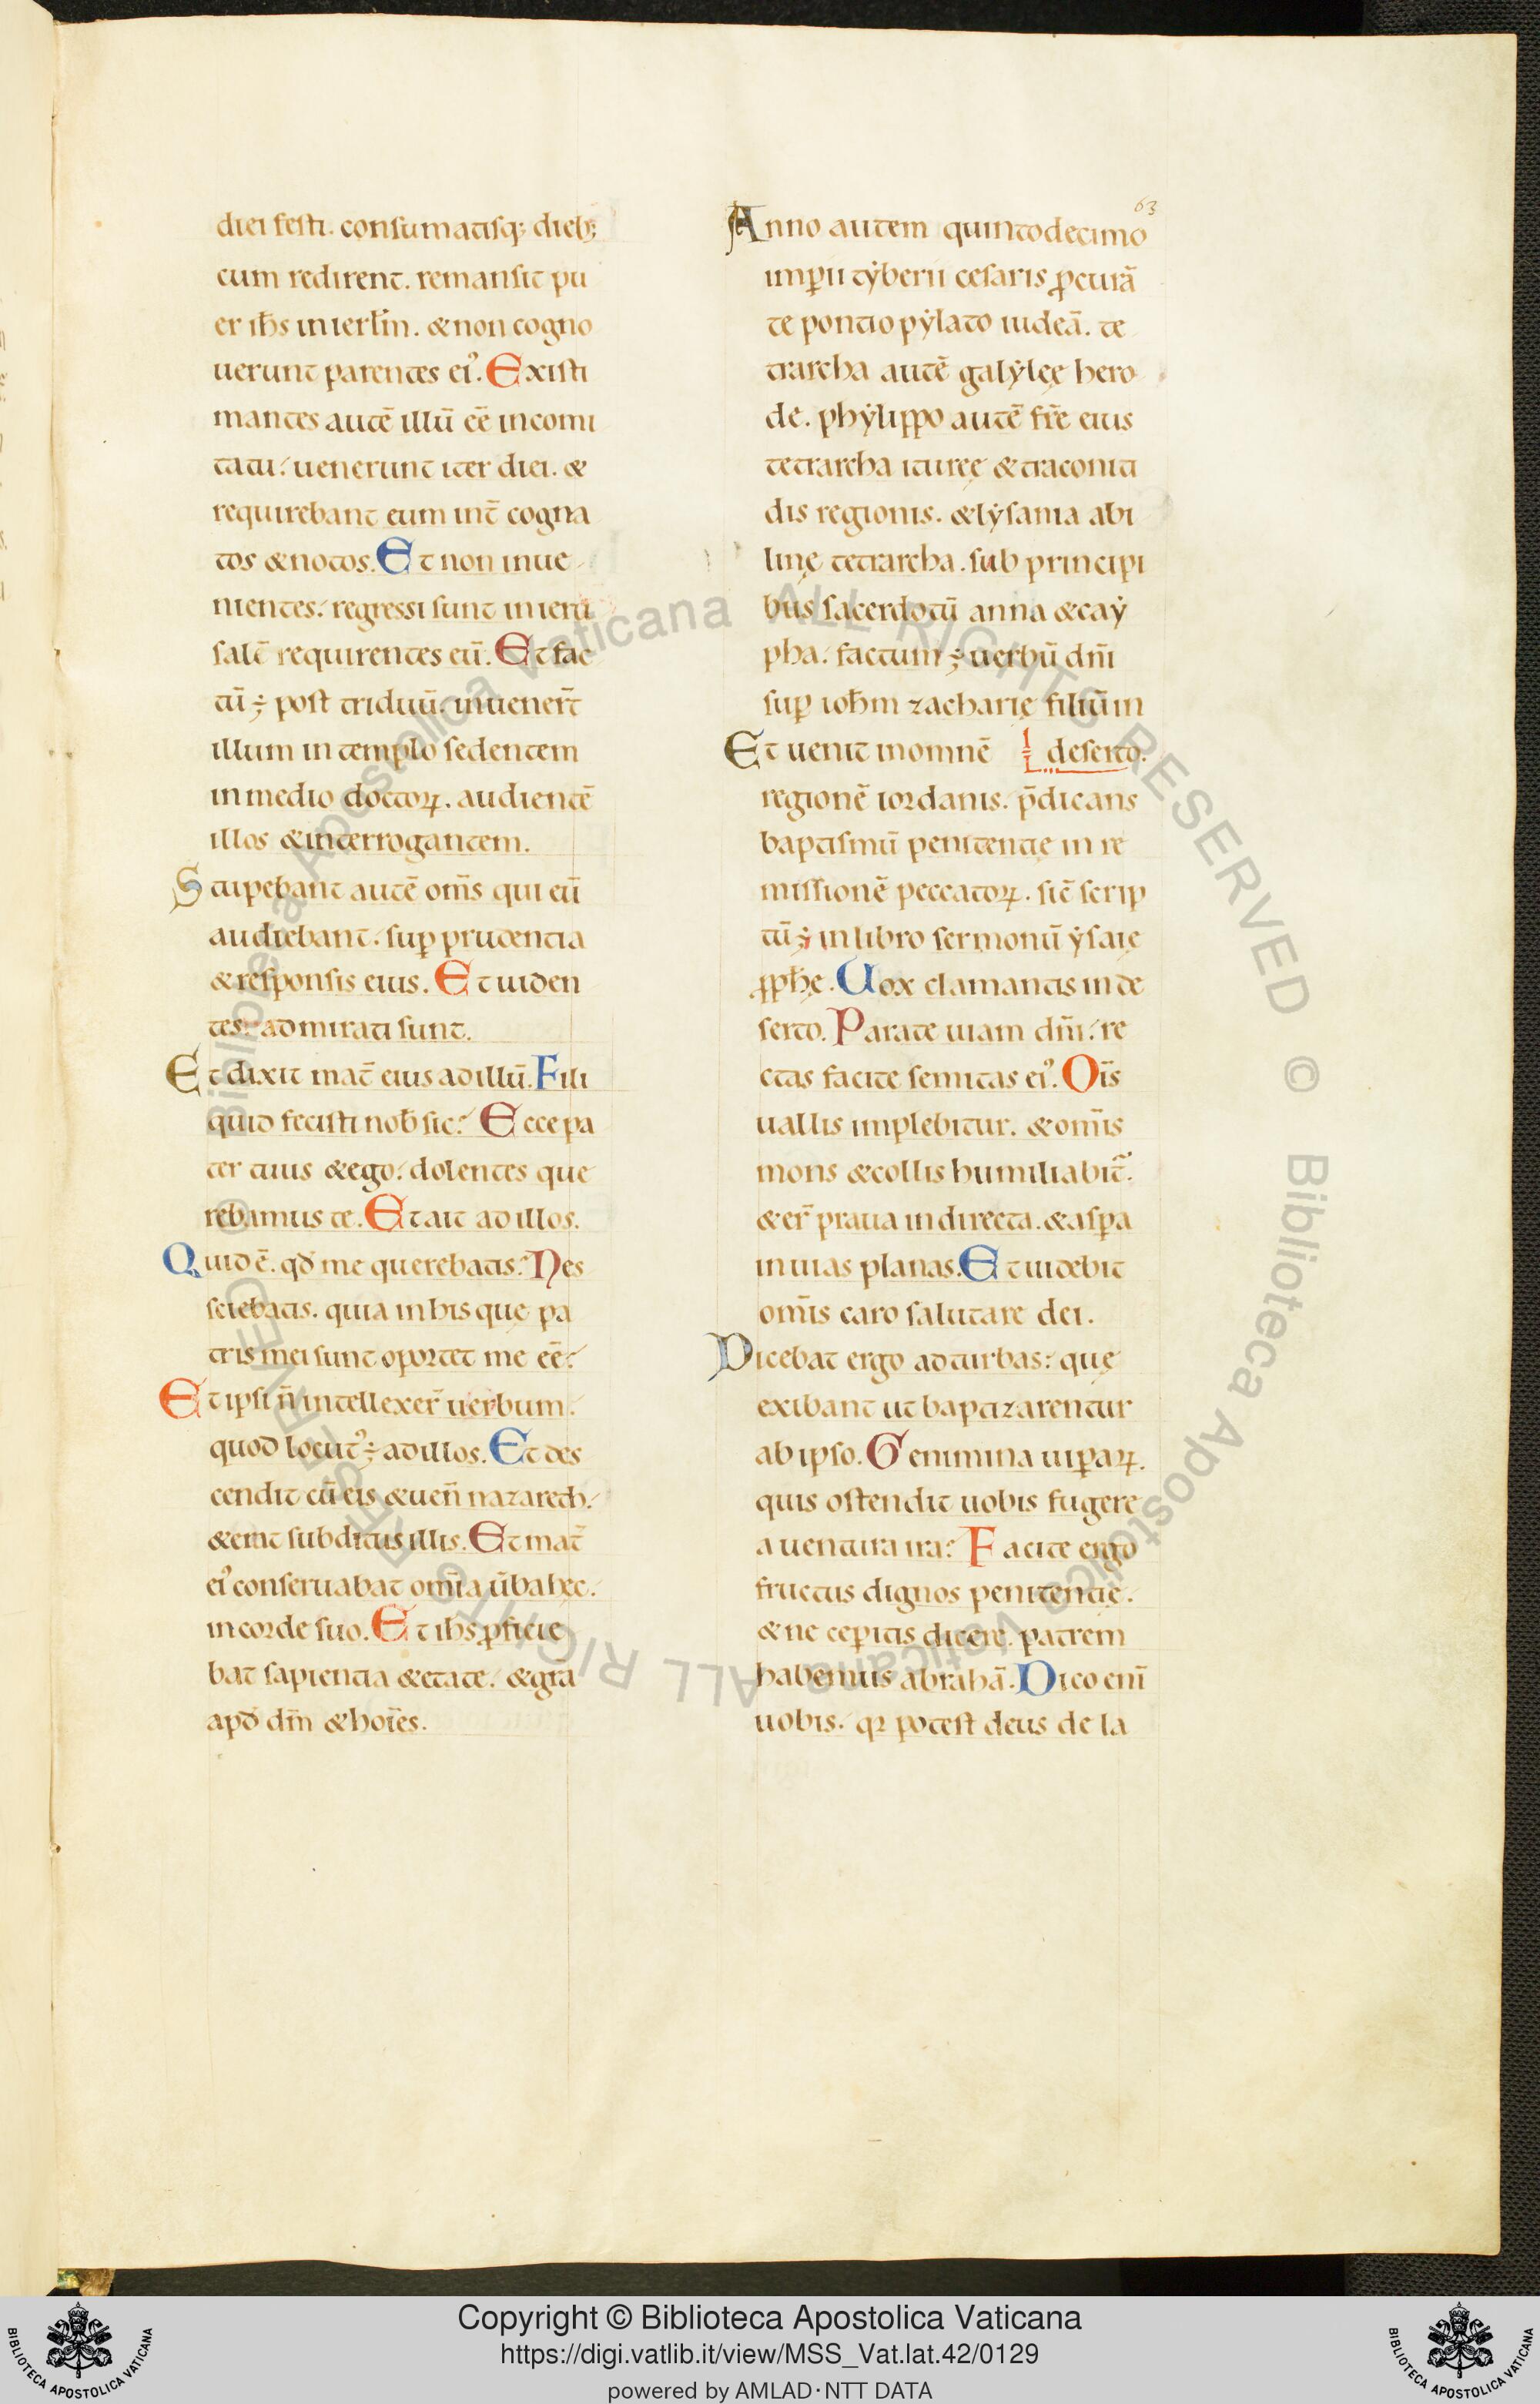 diei festi. consumatisq; dieb;
cum redirent. remansit pu
er ihs in ierlm̄. & non cogno
uerunt parentes ei᾽. Existi
mantes autē illū eē in comi
tatu. uenerunt iter diei. &
requirebant eum int̄ cogna
tos & notos. Et non inue
nientes. regressi sunt in ieru
salē requirentes eū. Et fac
tū ÷ post triduū. inuener̄t
illum in templo sedentem
in medio doctoꝝ. audientē
illos & interrogantem.
Stupebant autē om̄s qui eū
audiebant. suꝑ prudentia
& responsis eius. Et uiden
tes: admirati sunt.
Et dixit mat̄ eius ad illū. Fili
quid fecisti nob̄ sic? Ecce pa
ter tuus & ego. dolentes que
rebamus te. Et ait ad illos.
Quid ē. qđ me querebatis? Nes
sciebatis. quia in his quę pa
tris mei sunt oportet me eē?
Et ipsi n̄ intellexer̄ uerbum.
quod locut᾽ ÷ ad illos. Et des
cendit cū eis & uen̄ nazareth.
& erat subditus illis. Et mat̄
ei᾽ conseruabat om̄ia ūba hęc.
in corde suo. Et ihs ꝓficie
bat sapientia & etate. & gr̄a
apđ dm̄ & hoīes.
63
Anno autem quintodecimo
imꝑii tẏberii cesaris ꝓcurā
te pontio pẏlato iudeā. te
trarcha autē galẏlęę hero
de. phẏlippo autē fr̄e eius
tetrarcha ituręę & traconiti
dis regionis. & lẏsania abi
linę tetrarcha. sub principi
bus sacerdotū anna & caẏ
pha. factum ÷ uerbū dn̄i
suꝑ ioh̄m zacharię filiū in
deserto.
Et uenit in omnē
regionē iordanis. p̄dicans
baptismū penitentię in re
missionē peccatoꝝ. sic̄ scrip
tū ÷ in libro sermonū ẏsaię
ꝓph̄ę. Uox clamantis in de
serto. Parate uiam dn̄i. re
ctas facite semitas ei᾽. Oīs
uallis implebitur. & om̄is
mons & collis humiliabit᷑.
& er̄ praua in directa. & asꝑa
in uias planas. Et uidebit
om̄is caro salutare dei.
Dicebat ergo ad turbas: quę
exibant ut baptizarentur
ab ipso. Genimina uiꝑaꝝ.
quis ostendit uobis fugere
a uentura ira? Facite ergo
fructus dignos penitentię.
& ne ceꝑitis dicere. patrem
habemus abrahā. Dico enī
uobis. qꝛ potest deus de la
© Biblioteca Apostolica Vaticana ALL RIGHTS RESERVED © Biblioteca Apostolica Vaticana ALL RIGHTS RESERVED
Copyright © Biblioteca Apostolica Vaticana
https://digi.vatlib.it/view/MSS_Vat.lat.42/0129
powered by AMLAD·NTT DATA
BIBLIOTECA APOSTOLICA VATICANA
BIBLIOTECA APOSTOLICA VATICANA